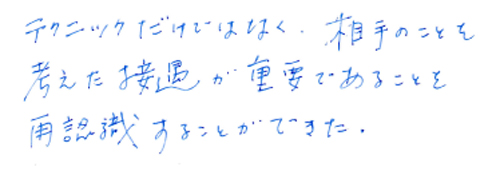 テクニックだけではなく、相手のことを
考えた接遇が重要であることを
再認識することができた。